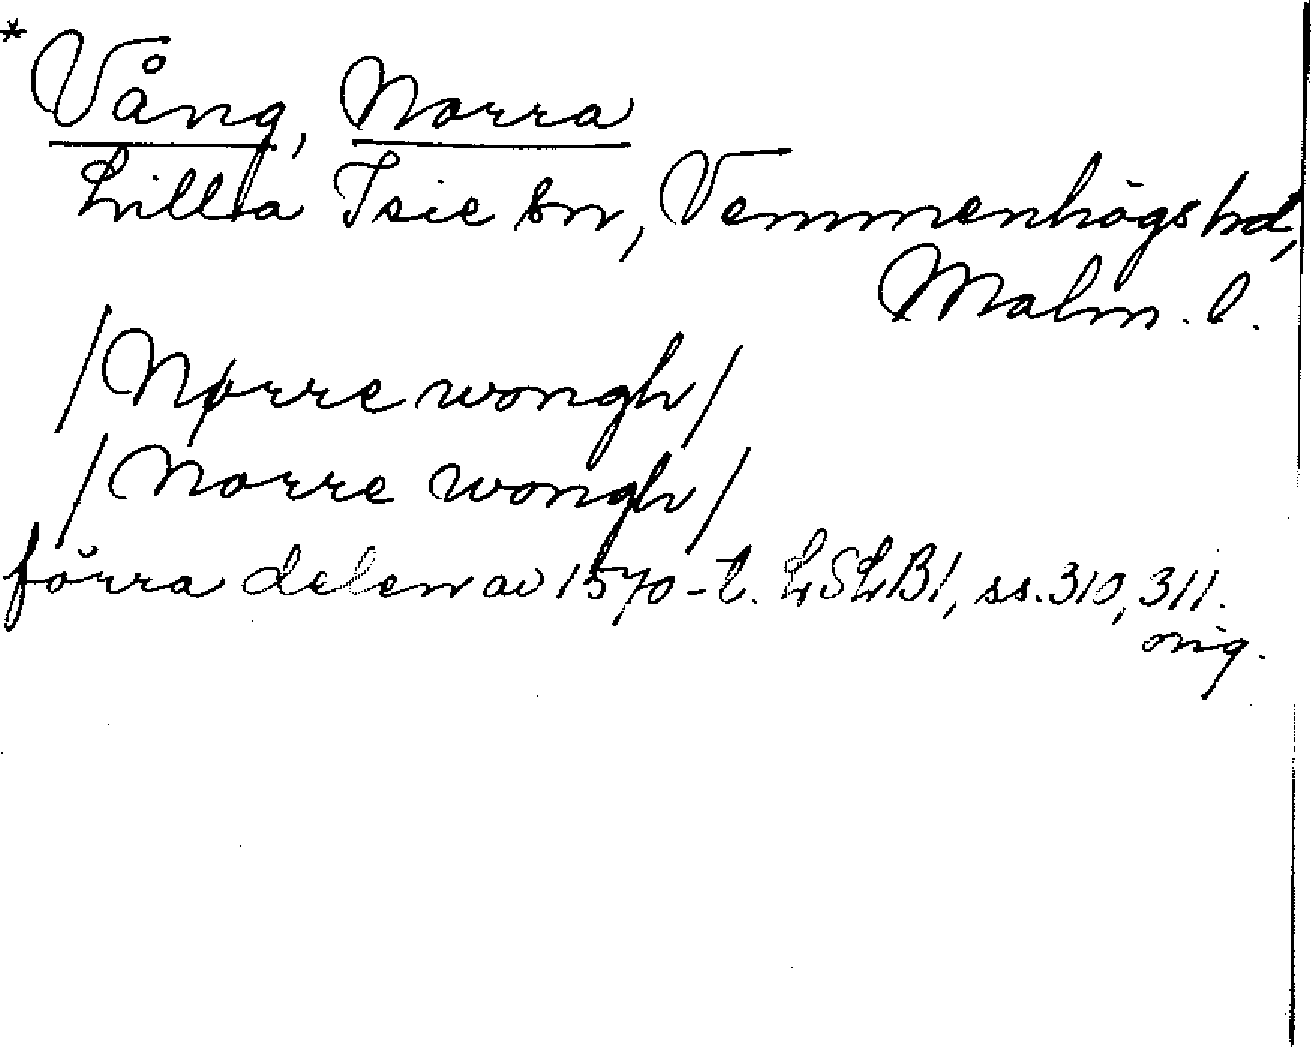 *Vång, Norra
Lilla Isie sn, Vemmenhögs hd,
Malm. l.
/Nørre wongh/
/Norre wongh/
förra delen av 1570-t. LSLB1, ss. 310, 311.
orig.